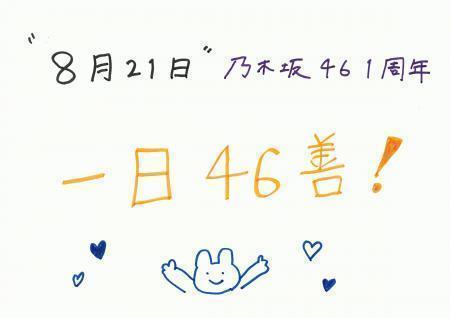 "8月21日" 乃木坂46 1周年
一日46善！